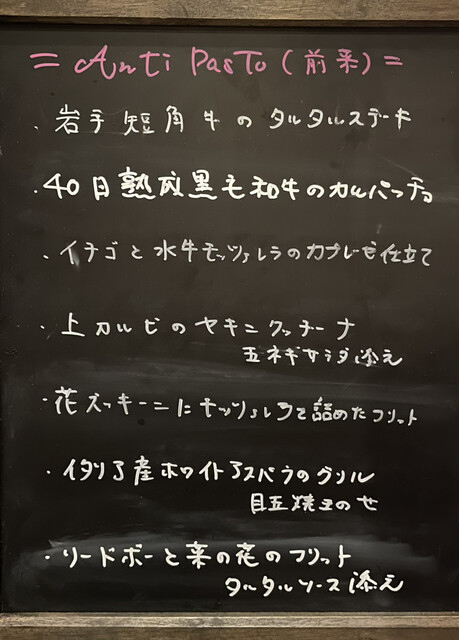 = Anti Pasto (前菜) =
・岩手短角牛のタルタルステーキ
・40日熟成黒毛和牛のカルパッチョ
・イチゴと水牛モッツァレラのカプレーゼ仕立て
・上カルビのヤキニクッチーナ
玉ネギサラダ添え
・花ズッキーニにモッツァレラを詰めたフリット
・イタリア産ホワイトアスパラのグリル
目玉焼きのせ
・リードボーと菜の花のフリット
タルタルソース添え